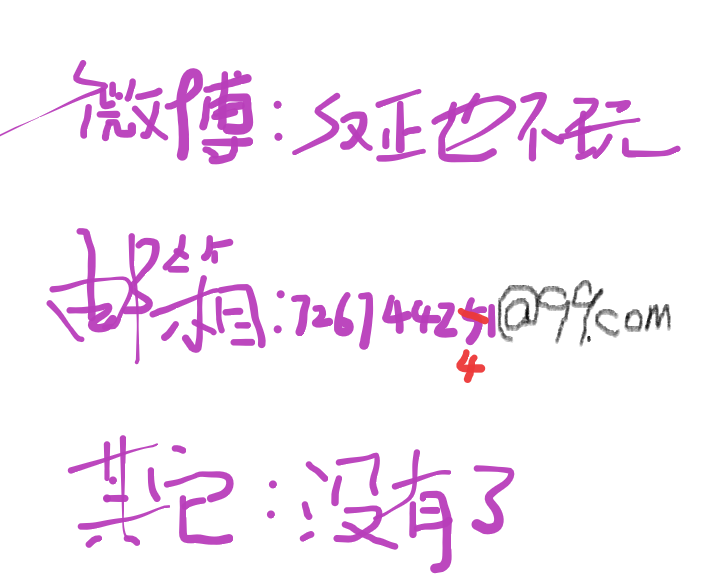 微博:反正也不玩
邮箱:726744241@99.com
其它:没有了